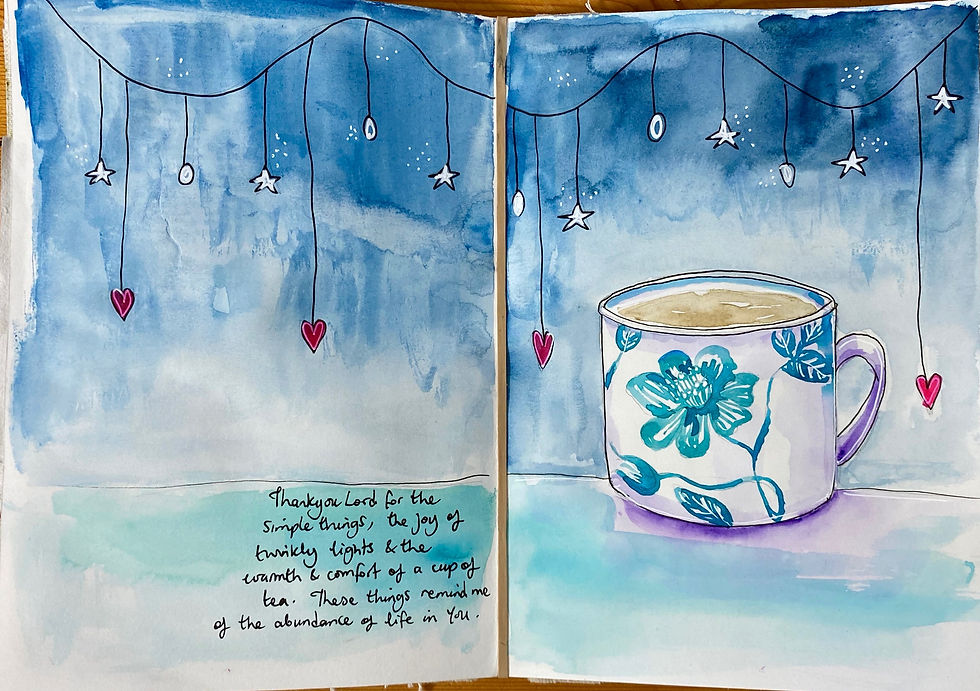 Thankyou Lord for the
simple things, the joy of
twinkly lights & the
warmth & comfort of a cup of
tea. These things remind me
of the abundance of life in You.